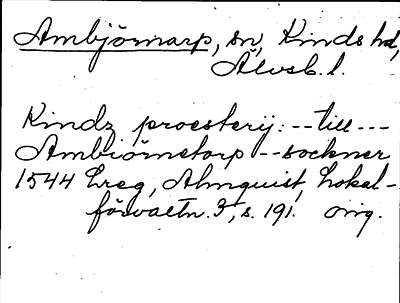 Ambjörnarp, sn, Kinds hd,
Älvsb. l.
Kindz proesterij: -- till ---
Ambiörnetorp -- sockner
1544 Ereg, Almquist, Lokal-
förvaltn. 3, s. 191. orig.